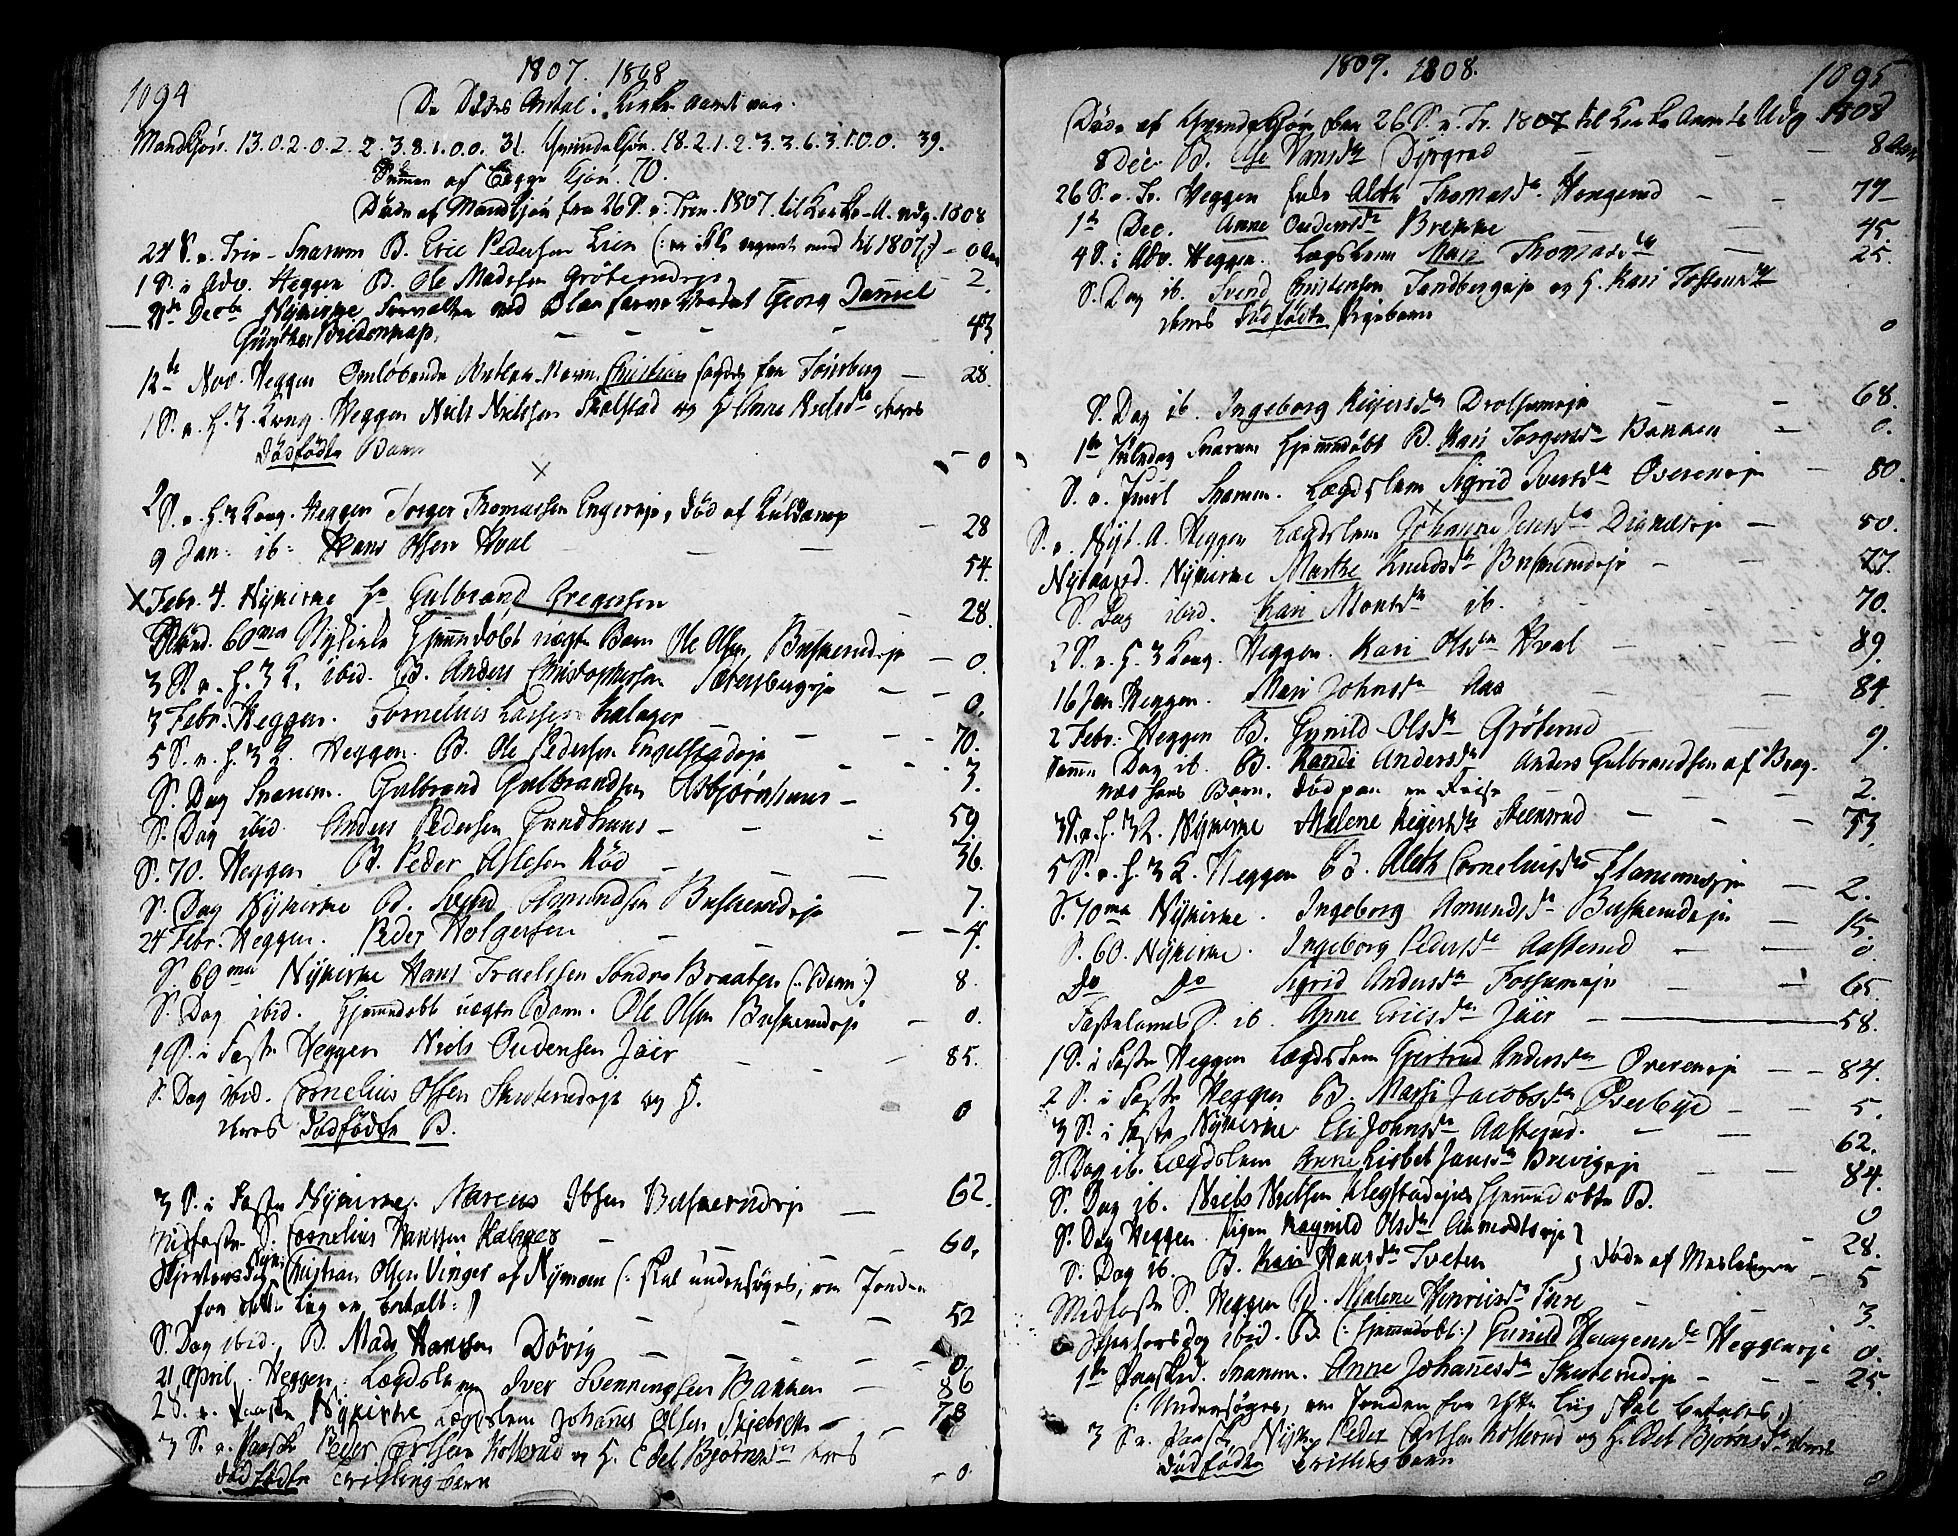 1094
1807. 1808
De Dødes Antal i Kirke Aaret var.
Mandkjøn. 13.0.2.0.2.2.3.8.1.0.0. 31. Qvindekjøn. 18.2.1.2.3.3.6.3.1.0.0. 39.
Summen af begge Kjøn. 70.
Døde af Mandkjøn fra 26 S. e. Trin. 1807. til Kirke-A. udg. 1808
24 S. e. Trin - Snarum B. Eric Pedersen Lien (: er ikke regnet med til 1807:) - 0 Aar
1 S. i Adv. Heggen B. Ole Madsen Grøterudeje - 2.
Decbr Nykirke, Forvalter ved Blaafarve Værket Georg Daniel
Günther Bredenkap. - - - 43
12te Nov. Heggen Omløbende Natmands Christian sagdes fra Tønsberg - 28.
1 S. e. H. 3 Kong. Heggen Niels Nielsen Skalstad og H. Anne Nielsdtr deres
Dødfødte Barn - 0
2 S. e. H. 3 Kong. Heggen Torger Thomassen Engereje, død af Kuldamp - 28
9 Jan: ib: Hans Olsen Hval - - 54.
Febr. 4. Nykirke Hr Gulbrand Gregersen - 28.
Sønd. 60ma Nykirke Hjemmedøbt uægte Barn Ole Olsen Buskerudeje - 0.
3 S. e. H. 3 K. ibid. B. Anders Christophersen Sætersbergeje - - 0.
3 Febr. Heggen. Cornelius Larsen Kalager - 70.
5 S. e. H. 3 K. Heggen. B. Ole Pedersen Engelstadeje - - - 3.
S. Dag Snarum. Gulbrand Gulbrandsen Asbjørnhuus - 59
S. Dag ibid. Anders Pedersen Gundhuus - - - 36.
S. 70. Heggen B. Peder Aslesen Rød - - - 7.
S. Dag Nykirke B. Svend Amundsen Buskerudeje
24 Febr. Heggen. Peder Holgersen - - - 4.
S. 60ma Nykirke Hans Truelssen Søndre Braaten (: Barn :) 8.
S. Dag ibid. Hjemmedøbt uægte Barn. Ole Olsen Buskerudeje - 0.
1 S. i Faste Heggen Niels Oudensen Jair - - 85.
S. Dag ibid. Cornelius Olsen Skuterudeje og H.
deres dødfødte B. 0
3 S. i Faste Nykirke. Marcus Ibsen Buskerudeje - 62.
Midfaste S. Cornelius Hanssen Kalager - 60.
Christian Olsen Vinger af Nymoen (: skal undersøges, om Jorden
for dette Lig er betalt :) 52
S. Dag ibid. B. Mads Hansen Døvig - - - 0.
21 April. Heggen. Lægdslem Iver Svenningsen Bakken - 86
2 S. e. Paaske Nykirke Lægdslem Johannes Olsen Skjebrekke - 78
3 S. e. Paaske Peder Carlsen Kolterud og H. Edel Bjørnsdtr deres
dødfødte Tvillingbørn - 0.
1095
1807. 1808.
Døde af Qvindekjøn fra 26 S. e. Tr. 1807 til Kirke Aarets Udg. 1808
8 Dec. B. Else Hansdtr Dyrgrav - - - 8 Aar
26 S. e. Tr. Heggen Enke Aleth Thomasdtr Hengerud - - 77
1te Dec. Anne Oudensdtr Brekke - - 45
4 S. i Adv. Heggen. Lægslem Mari Thomasdtr - 25.
S. Dag ib. Svend Christensen Sandbergeje og H. Kari Tostensdtr
deres dødfødte Pigebarn 0
S. Dag ib. Ingeborg Reiersdtr Drolsumeje - - 68.
1te Juledag Snarum Hjemmedøbt B. Kari Torgersdtr Bakken - 0.
S. e. Juul Snarum. Lægdslem Sigrid Iversdtr Overeneje - 80.
S. e. Nyt. A. Heggen Lægdslem Johanne Jensdtr - 50.
Nytaarsd. Nykirke Marthe Knudsdtr Buskerudeje - - 77.
S. Dag ibid. Kari Monsdtr ib. - - 70.
2 S. e. H. 3 Kong. Heggen. Kari Olsdtr Hval - - 89.
16 Jan. Heggen. Mari Johnsdtr Aas - - 84.
2 Febr. Heggen B. Gunild Olsdtr Grøterud - - 9.
samme Dag ib. B. Randi Andersdtr Anders Gulbrandsen af Brag-
næs hans Barn. død paa en Reise - - 2.
3 S. e. H. 3 K. Nykirke Malene Reiersdtr Steensrud - - - 73.
5 S. e. H. 3 K. Heggen B. Aleth Corneliusdtr - 2.
S. 70ma Nykirke. Ingeborg Amundsdtr Buskerudeje - 15.
S. 60. Nykirke. Ingeborg Pedersdtr Aasterud - - 0
Do Do Sigrid Andersdtr Fossumeje - - 65.
Fastelavns S. ib. Anne Ericsdtr Jair - 58.
1 S. i Faste Heggen Lægdslem Gjertrud Andersdtr Overeneje - - 84.
2 S. i Faste Heggen B. Marthe Jacobsdtr Østerbye - - 5.
3 S. i Faste Nykirke. Eli Johnsdtr Aasterud. - - 62.
S. Dag ib. Lægdslem Anne Lisbet Jansdtr Brevigeje - - 84.
S. Dag ib. Niels Nielsen Klegstadejes hjemmedøbte B. 0
S. Dag Heggen. Pigen Ragnild Olsdtr Aamodtseje - 28.
S. Dag ib. B. Kari Hansdtr Tveten } døde af Meslinger - 5
Midfaste S. Heggen B. Malene Henricsdtr Ture - - 3.
Skjærtorsdag ibid. B. (: Hjemmedøbt :) Gunild Haagensdtr Heggeneje 0.
1te Paaskd. Snarum. Anne Johannesdtr Skuterudeje - - - 25.
(: Undersøges, om Jorden for dette Lig skal betales :)
3 S. e. Paaske Nyk. Peder Carlsen Kolterud og H. Edel Bjørnsdtr deres
dødfødte Tvillingbørn 0